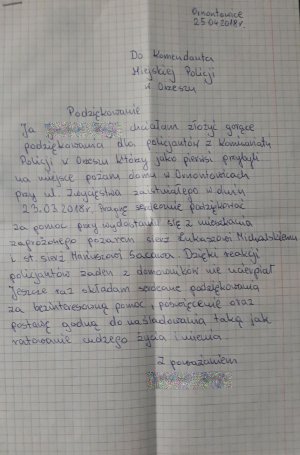 Ornontowice
25.04.2018r.
Do Komendanta
Miejskiej Policji
w Orzeszu
Podziękowanie
Ja chciałam złożyć gorące
podziękowania dla policjantów z komisariatu
Policji w Orzeszu którzy jako pierwsi przybyli
na miejsce pożaru domu w Ornontowicach
przy ul. Zwycięstwa zaistniałego w dniu
23.03.2018r. Pragnę serdecznie podziękować
za pomoc przy wydostaniu się z mieszkania
zagrożonego pożarem sierż Łukaszowi Michalskiemu
i st. sierż Mariuszowi. Dzięki reakcji
policjantów żaden z domowników nie ucierpiał
Jeszcze raz składam serdeczne podziękowania
za bezinteresowną pomoc, poświęcenie oraz
postawę godną do naśladowania taką jak
ratowanie cudzego życia i mienia.
Z poważaniem